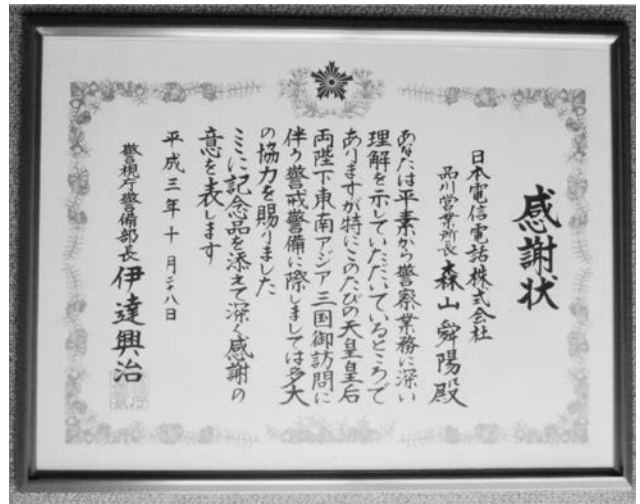 感謝状
日本電信電話株式会社
品川営業所長 森山舜陽殿
あなたは平素から警察業務に深い
理解を示していただいているところで
ありますが特にこのたびの天皇皇后
両陛下東南アジア三国御訪問に
伴う警戒警備に際しましては多大
の協力を賜りました
ここに記念品を添えて深く感謝の
意を表します
平成三年十月二十八日
警視庁警備部長 伊達興治